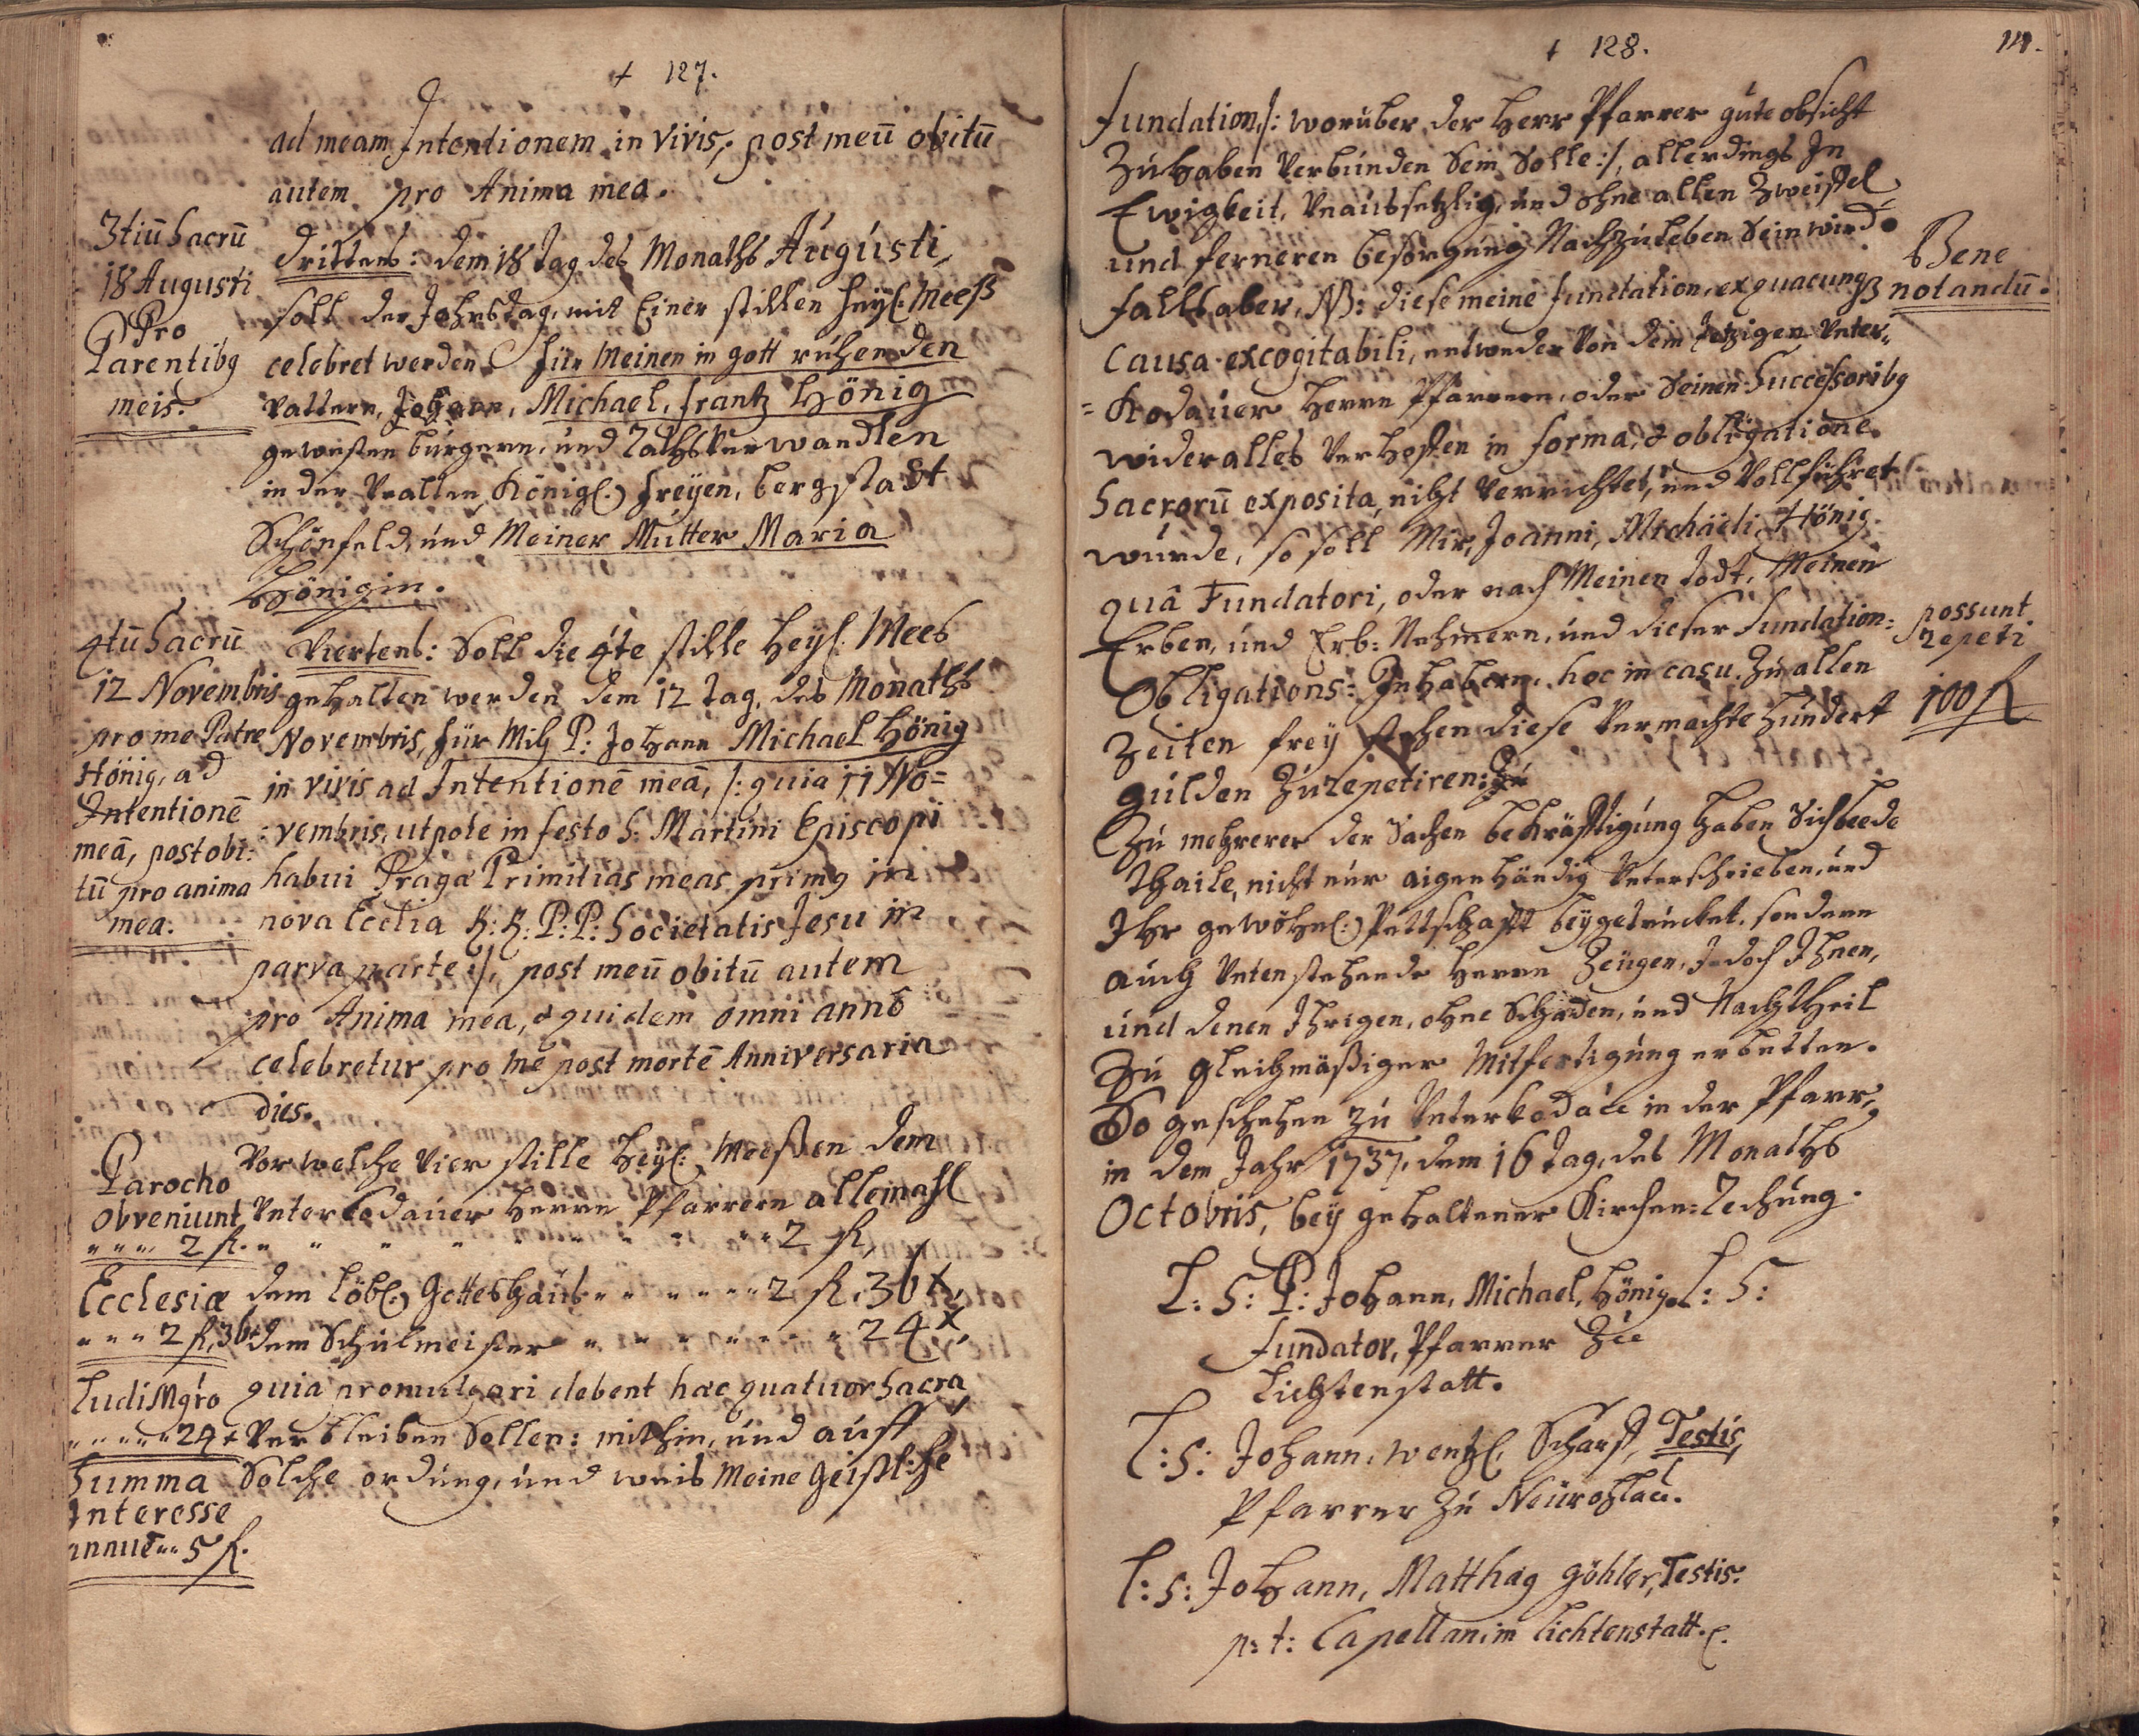 + 127.
ad meam Intentionem in vivis, post meū obitū
autem pro Anima mea.
3tiū Sacrū
18 Augusti
Pro
Parentibꝯ
meis.
Drittens: dem 18 Tag des Monaths Augusti,
soll der Jahrstag, mit Einer stillen heyl: Meeß
celebret werden für Meinen in gott ruhenden
Vattern, Johann, Michael, Frantz Hönig
gewesten bürgern, und Rathsverwandten
in der Uralten Königl:) freyen, bergstadt
Schönfeld, und Meiner Mutter Maria
Hönigin.
4tū Sacrū
12 Novembris
pro me Patre
Hönig, ad
Intentionē
meā, post obi:
tū pro anima
mea.
Viertens: Soll die 4te stille Heyl: Mees
gehalten werden dem 12 Tag, des Monaths
Novembris, für Mich P: Johann Michael Hönig
in vivis ad Intentionē meā, /: quia 11 No=
:vembris, utpote in festo S: Martini Episcopi
habui Pragæ Primitias meas primꝯ in
nova Ecclia R: R: P: P: Societatis Jesu in
parva parte :/, post meū obitū autem
pro Anima mea, & quidem omni anno
celebretur pro me post mortē Anniversaria
dies.
Parocho
obveniunt
" " " 2 fl.
Ecclesiæ
" " " 2 fl, 36
Ludi Mgro
" " " " " 24 x
Summa
Interesse
annuē " " 5 fl.
Vor welche Vier stille Heyl: Meeßen dem
Unterkodauer Herrn Pfarrern allemahl
" " " " " " " " " 2 fl,
dem löbl:) Gotteshaus " " " " " " 2 fl, 36 x,
dem Schulmeister " " " " " " 24 x,
quia promulgari debent hæc quatuor Sacra
Verbleiben Sollen: mithin, und auff
Solche ordung, und weis Meine Geistliche
+ 128.
Fundation, /: worüber der Herr Pfarrer gute obsicht
Zu haben Verbunden Sein Solle :/, allerdings In
Ewigkeit, Unaussetzlig, und ohne allen Zweiffel
und ferneren besorgung Nachzuleben Sein wird.
Bene
notandū.
Falls aber, NB: diese meine Fundation, ex quacunqꝫ
Causa excogitabili, entweder Von dem Jetzigen Unter„
=Kodauer Herrn Pfarrern, oder Seinen Successoribꝯ
wider alles Verhoffen in forma, & obligatione
Sacrorū exposita, nicht Verrichtet, und Vollführet
wurde, so soll Mir, Joanni, Michaëli, Hönig
quâ Fundatori, oder nach Meinen Todt, Meinen
Erben, und Erb: Nehmern, und dieser Fundation:
Obligations: Inhabern, hoc in casu, Zu allen
Zeiten frey stehen diese Vermachte Hundert
gulden Zu repetiren:
possunt
repeti
100 fl
Zu mehrerer der Sachen bekräfftigung haben Sich beede
Thaile, nicht nur aigenhändig Unterschrieben, und
Ihr gewöhnl:) Pettschafft beygetrucket, sondern
auch Untenstehende Herrn Zeugen, Jedoch Ihnen,
und denen Ihrigen, ohne Schaden, und Nachtheil
Zu gleichmäßiger Mitfertigung erbetten.
So geschehen zu Unterkodau in der Pfarr,
in dem Jahr 1737, dem 16 Tag, des Monaths
Octobris, bey gehaltener Kirchen: Rechung.
L: S: P: Johann, Michael, Hönig. L: S:
Fundator, Pfarrer Zu
Lichtenstatt.
L: S: Johann, Wentzl, Scharff, Testis,
Pfarrer Zu Neurohlau.
L: S: Johann, Matthæꝯ Göhler, Testis.
p: t: Capellan im Lichtenstatt.